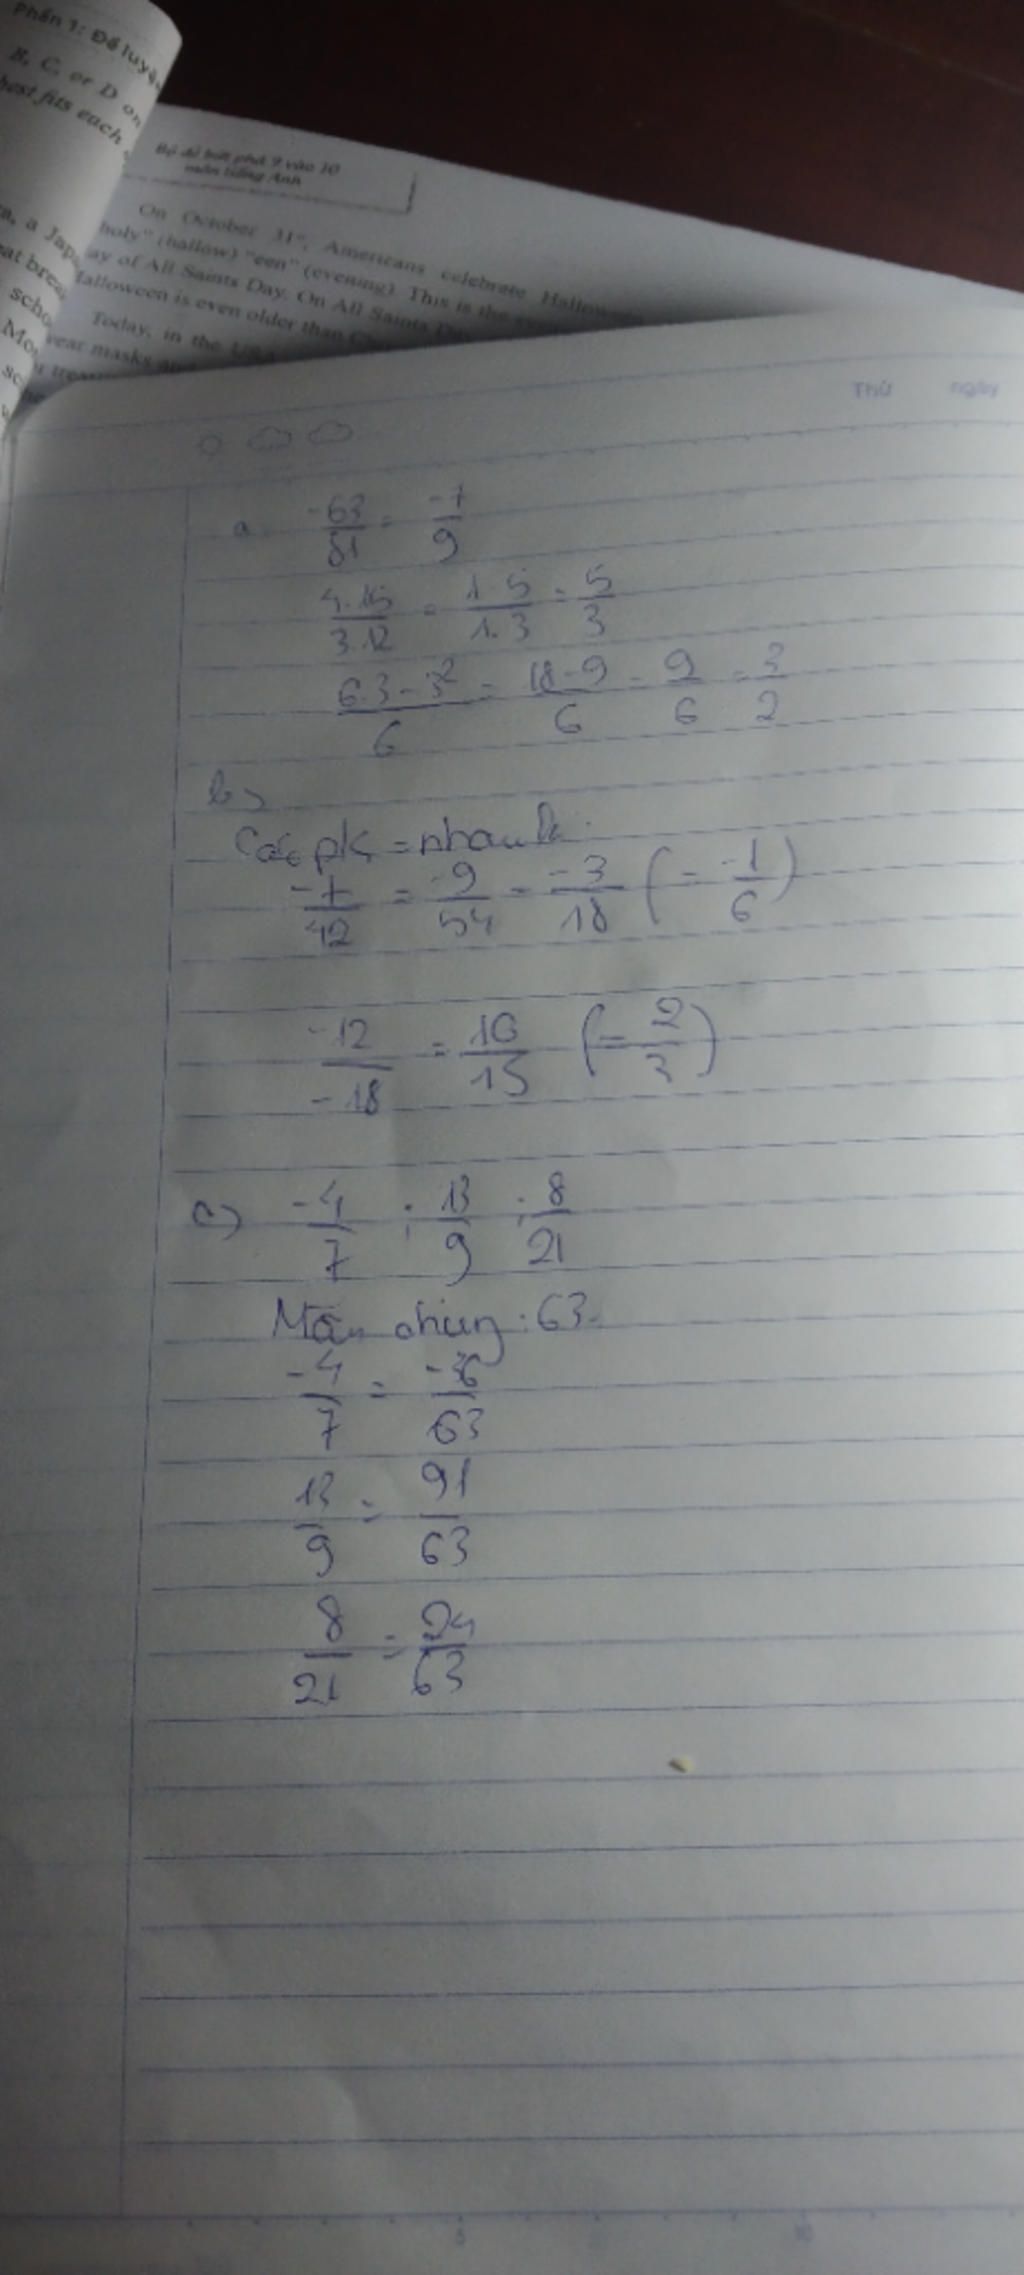 Phần 1: Đề luyện
B, C, or D on
best fits each
Bộ đề bứt phá 9 vào 10
môn tiếng Anh
On October 31st, Americans celebrate
holy" (hallow) "een" (evening). This is the
ay of All Saints Day. On All Saints
alloween is even older than
Today, in the USA
ear masks and
a, a Jap
eat brea
scho
Mo
Thứ ngày
a. -63/81 = -7/9
4.15/3.12 = 1.5/1.3 = 5/3
6.3-3²/6 = 18-9/6 = 9/6 = 3/2
b)
Các ps = nhau là:
-7/42 = -9/54 = -3/18 (= -1/6)
-12/-18 = 10/15 (= 2/3)
c) -4/7 ; 13/9 ; 8/21
Mẫu chung: 63.
-4/7 = -36/63
13/9 = 91/63
8/21 = 24/63
5
10